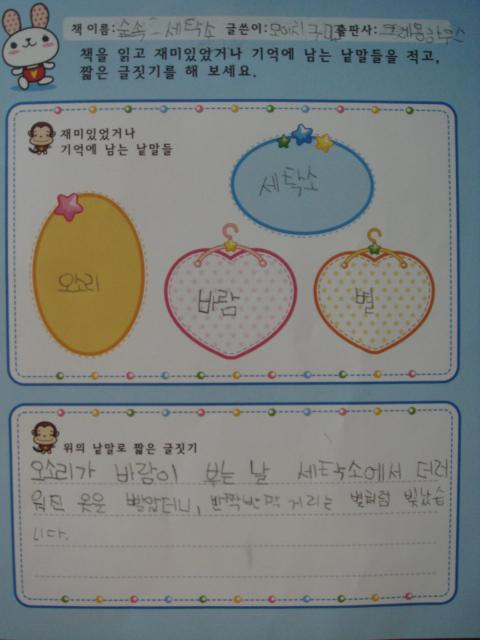 책 이름: 숲속 세탁소 글쓴이: 출판사:
책을 읽고 재미있었거나 기억에 남는 낱말들을 적고,
짧은 글짓기를 해 보세요.
재미있었거나
기억에 남는 낱말들
세탁소
오소리
바람
별
위의 낱말로 짧은 글짓기
오소리가 바람이 부는 날 세탁소에서 더러
워진 옷을 빨았더니, 반짝반짝 거리는 별처럼 빛났습
니다.